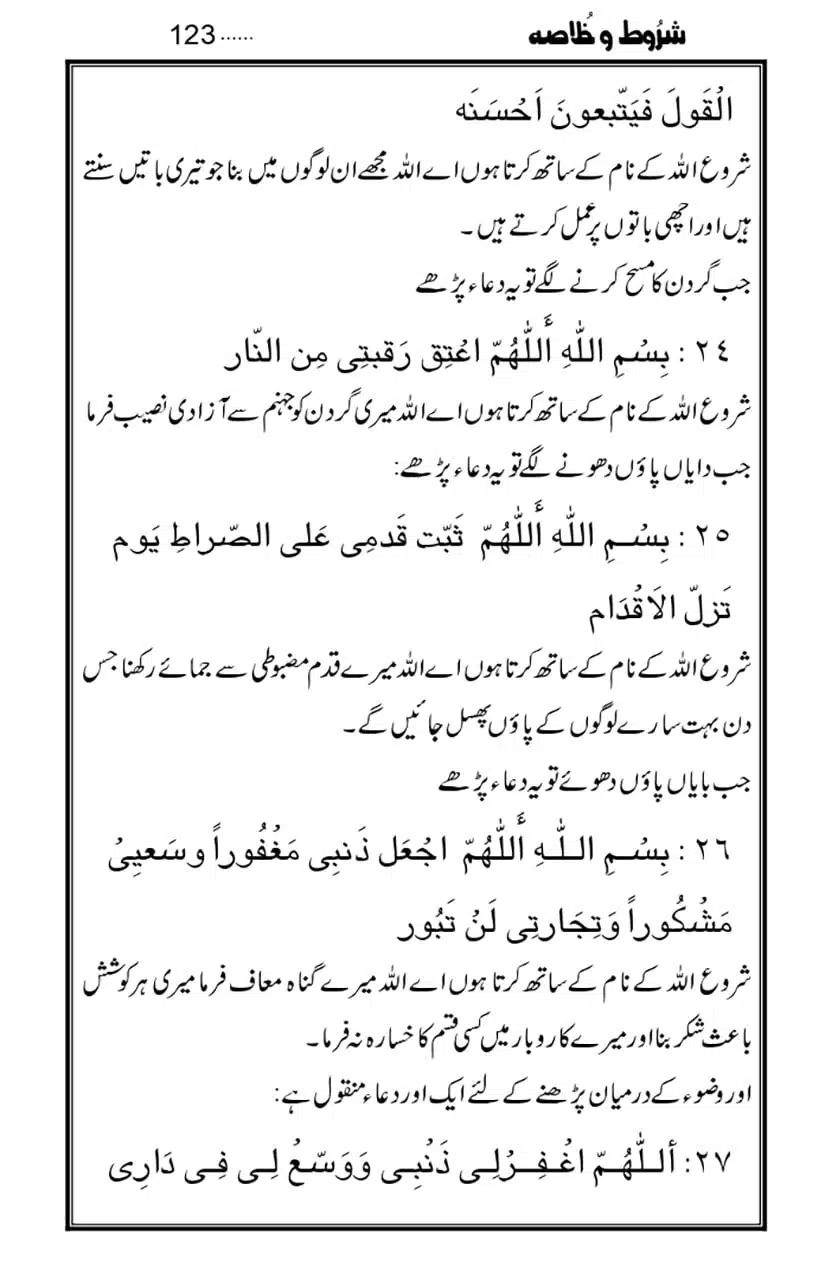 شرُوط و خُلاصه ...... 123
الْقَولَ فَیَتّبعونَ اَحْسَنَه
شروع اللہ کے نام کے ساتھ کرتا ہوں اے اللہ مجھے ان لوگوں میں بنا جو تیری باتیں سنتے
ہیں اور اچھی باتوں پر عمل کرتے ہیں۔
جب گردن کا مسح کرنے لگے تو یہ دعاء پڑھے
٢٤ : بِسْمِ اللّٰهِ أَللّٰهُمّ اعْتِق رَقبتِی مِن النّار
شروع اللہ کے نام کے ساتھ کرتا ہوں اے اللہ میری گردن کو جہنم سے آزادی نصیب فرما
جب دایاں پاؤں دھونے لگے تو یہ دعاء پڑھے:
٢٥ : بِسْمِ اللّٰهِ أَللّٰهُمّ ثَبّت قَدمِی عَلی الصّراطِ یَوم
تَزلّ الاَقْدَام
شروع اللہ کے نام کے ساتھ کرتا ہوں اے اللہ میرے قدم مضبوطی سے جمائے رکھنا جس
دن بہت سارے لوگوں کے پاؤں پھسل جائیں گے۔
جب بایاں پاؤں دھوئے تو یہ دعاء پڑھے
٢٦ : بِسْمِ اللّٰهِ أَللّٰهُمّ اجْعَل ذَنبِی مَغْفُوراً وسَعیِیْ
مَشْکُوراً وَتِجَارتِی لَنْ تَبُور
شروع اللہ کے نام کے ساتھ کرتا ہوں اے اللہ میرے گناہ معاف فرما میری ہر کوشش
باعث شکر بنا اور میرے کاروبار میں کسی قسم کا خسارہ نہ فرما۔
اور وضوء کے درمیان پڑھنے کے لئے ایک اور دعاء منقول ہے:
٢٧: أللّٰهُمّ اغْفِرْلِی ذَنْبِی وَوَسّعْ لِی فِی دَارِی